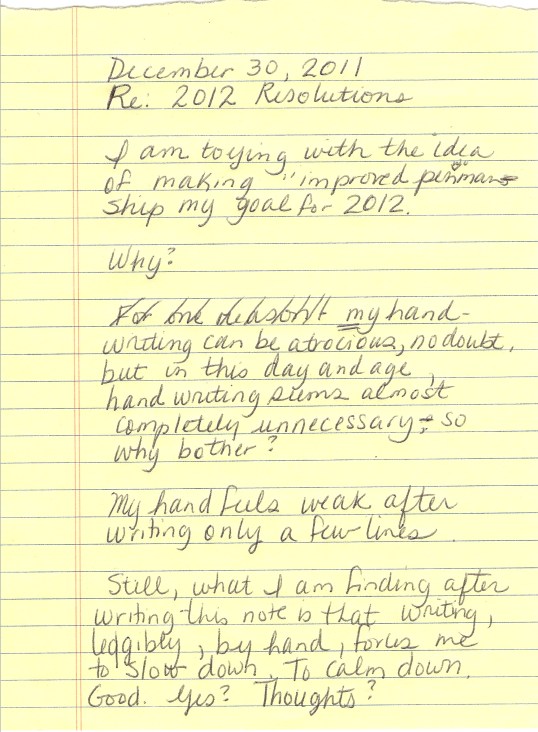 December 30, 2011
Re: 2012 Resolutions
I am toying with the idea
of making "improved penman-
ship my goal for 2012.
Why?
For one my hand-
writing can be atrocious, no doubt,
but in this day and age,
hand writing seems almost
completely unnecessary; so
why bother?
My hand feels weak after
writing only a few lines.
Still, what I am finding after
writing this note is that writing,
leggibly, by hand, forces me
to slow down. To calm down.
Good. Yes? Thoughts?